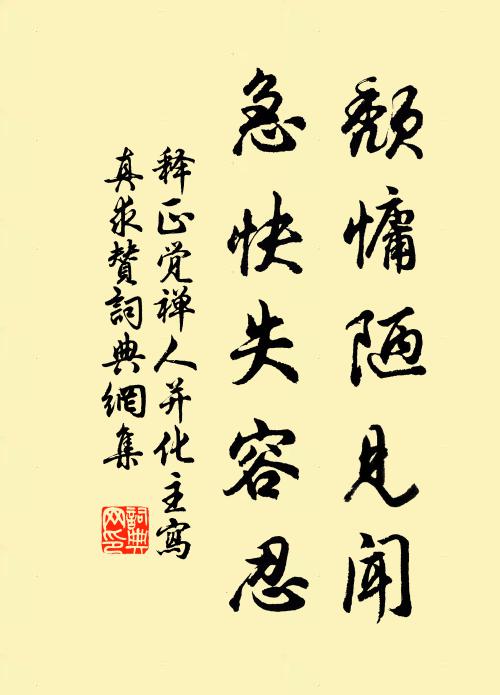 颓慵陋见闻
急快失容忍
释正觉禅人并化主寫
真求赞詞典網集
詞典网印